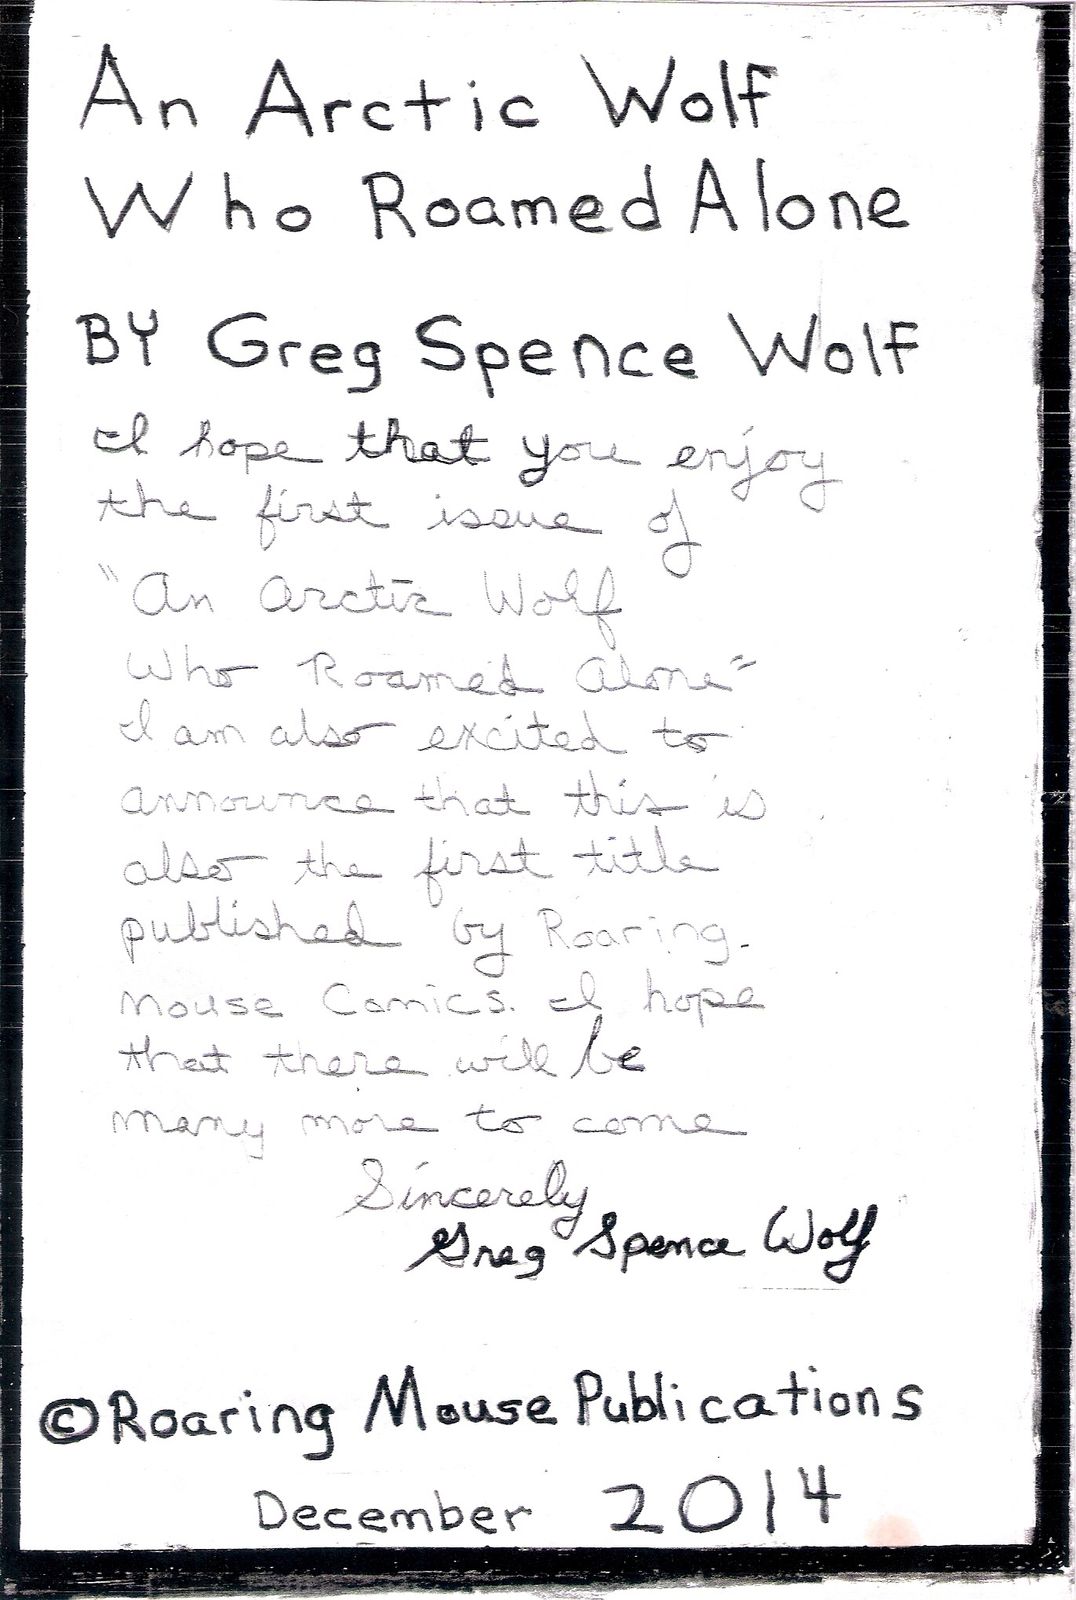 An Arctic Wolf
Who Roamed Alone
BY Greg Spence Wolf
I hope that you enjoy
the first issue of
"An Arctic Wolf
Who Roamed Alone"
I am also excited to
announce that this is
also the first title
published by Roaring-
Mouse Comics. I hope
that there will be
many more to come
Sincerely
Greg Spence Wolf
©Roaring Mouse Publications
December 2014